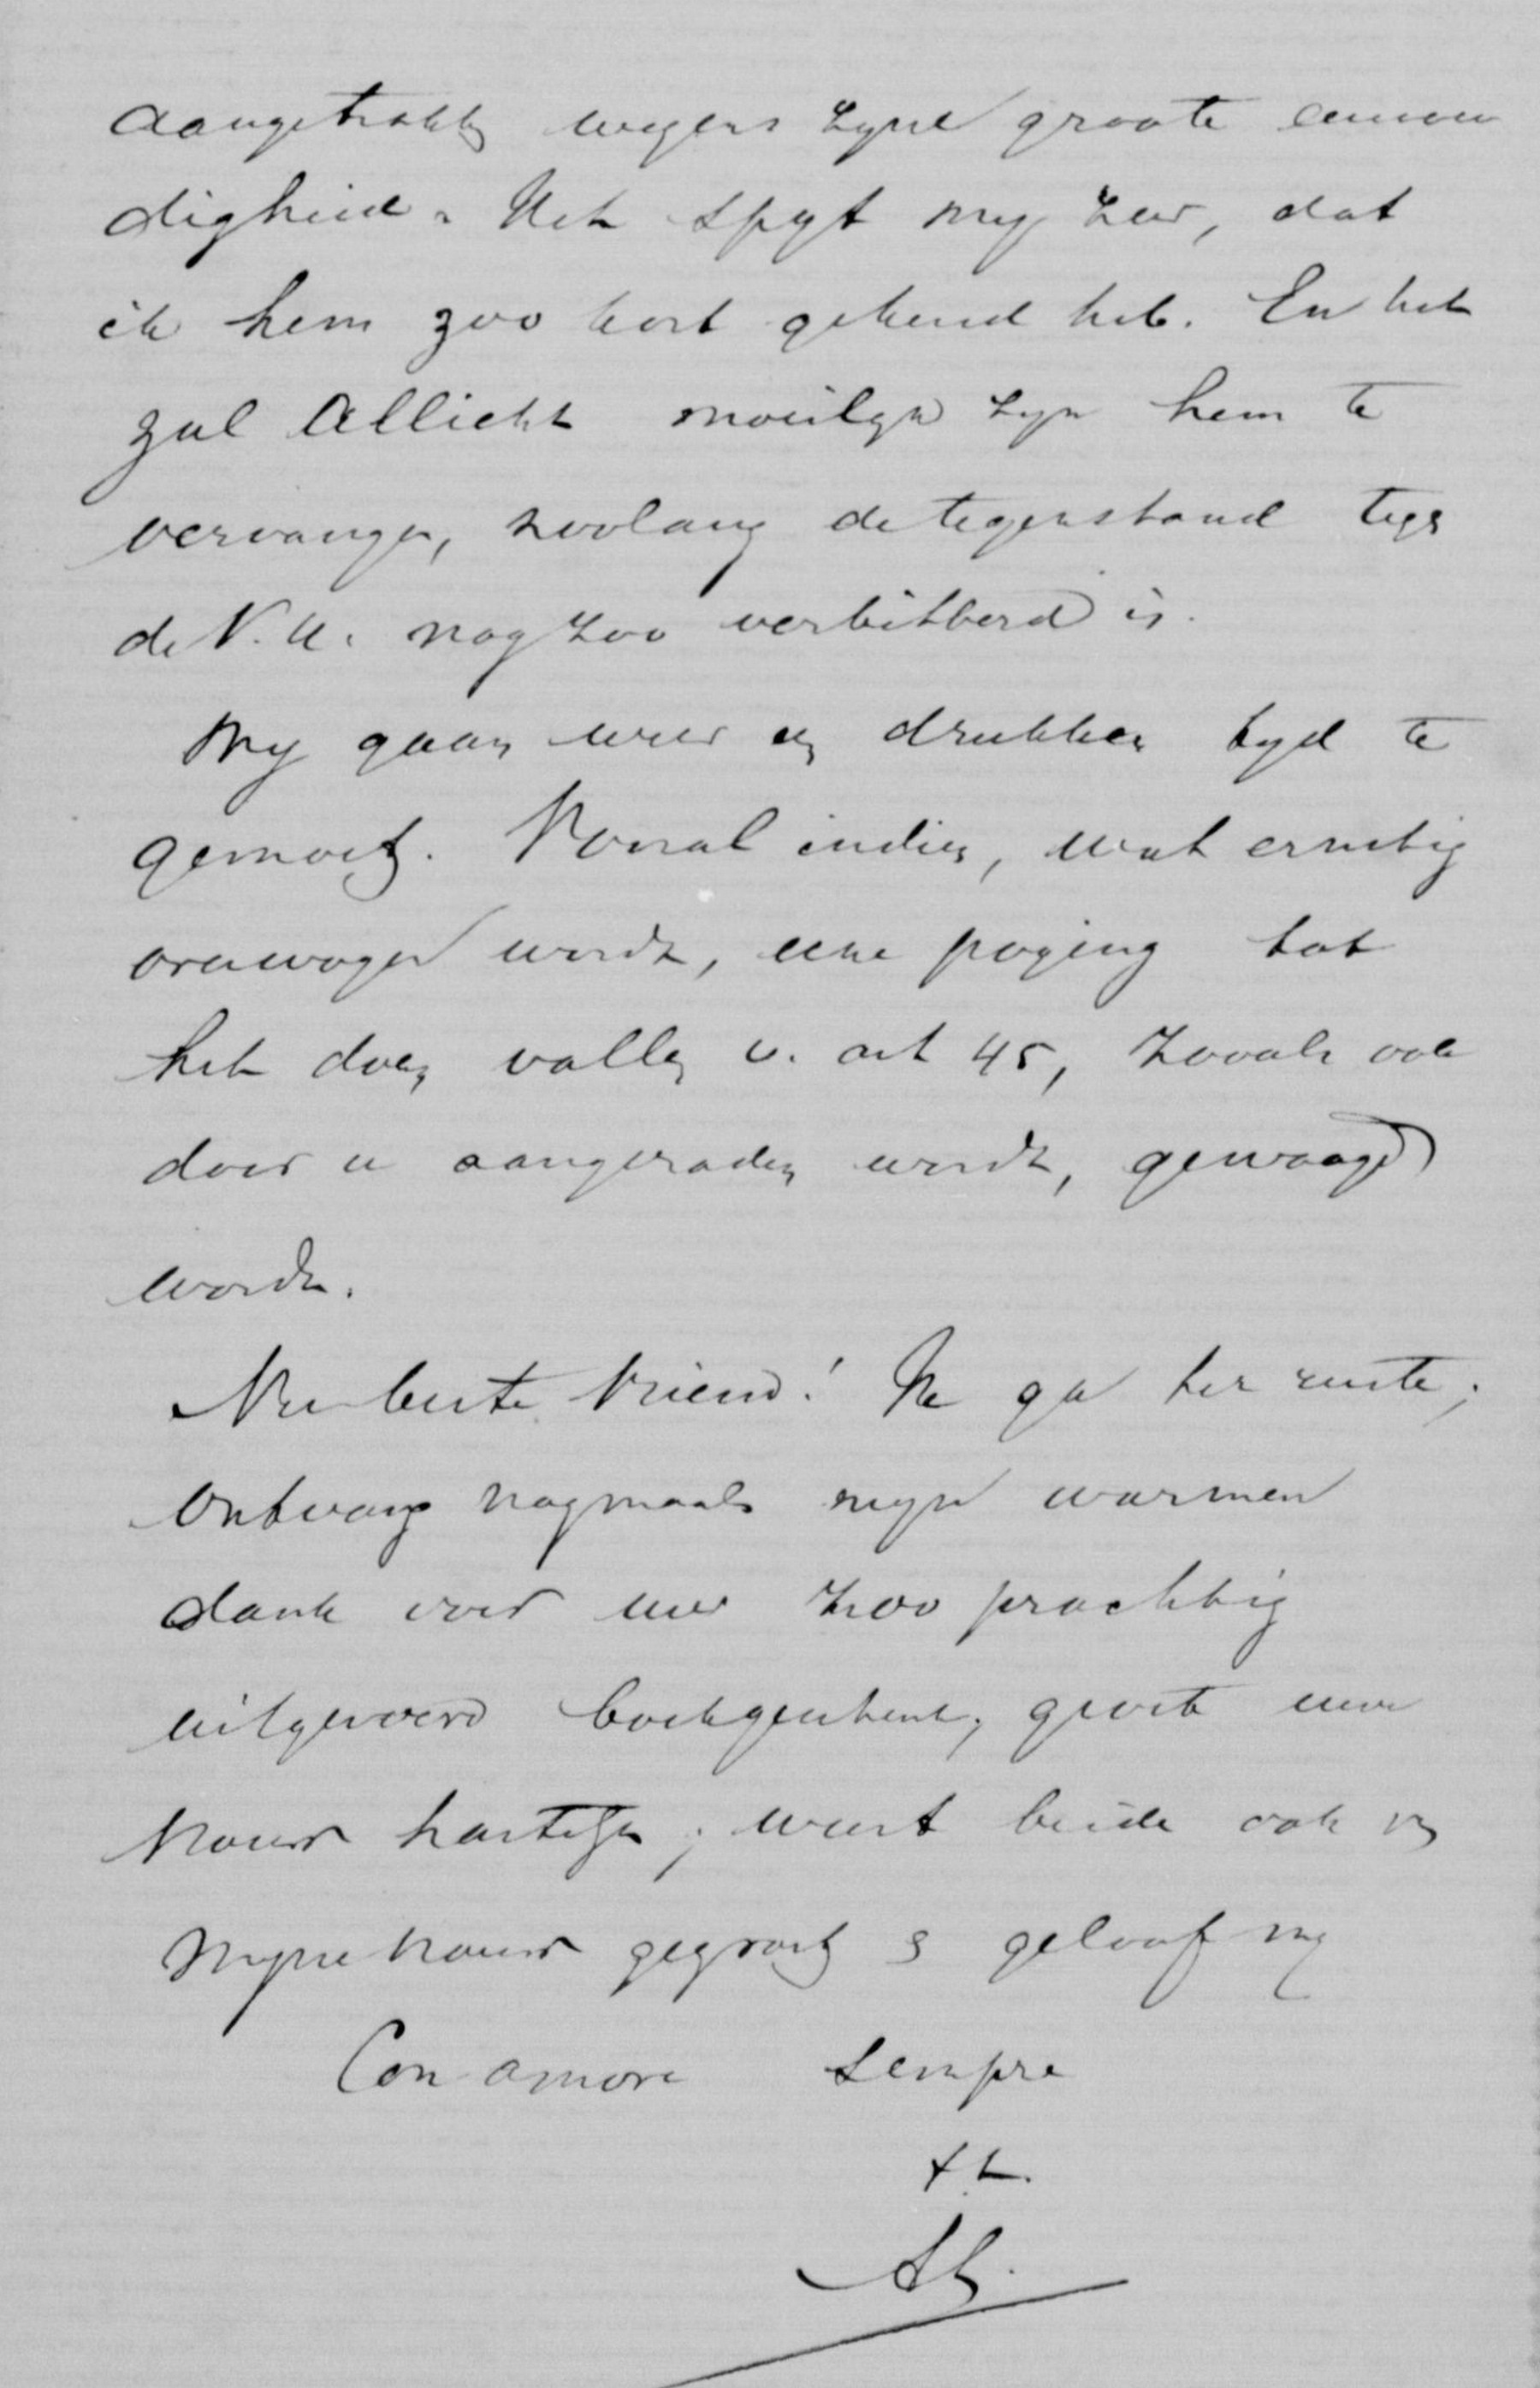 aangetrokken wegens zyne groote eenvou
digheid. Het spyt my zeer, dat
ik hem zoo kort gekend heb. En het
zal allicht moeilyk zyn hem te
vervangen, zoolang de tegenstand tegen
de V.U. nog zoo verbitterd is.
Wy gaan weer een drukken tyd te
gemoet. Vooral indien, wat ernstig
overwogen wordt, eene poging tot
het doen vallen v. art 45, zooals ook
door u aangeraden wordt, gewaagd
wordt.
Nu beste Vriend! Ik ga ter ruste;
ontvang nogmaals myn warmen
dank voor uw zoo prachtig
uitgevoerd boekgeschenk; groet uwe
Vrouw hartelyk; weest beide ook v
myne vrouw gegroet & geloof my
Con amore sempre
t.t.